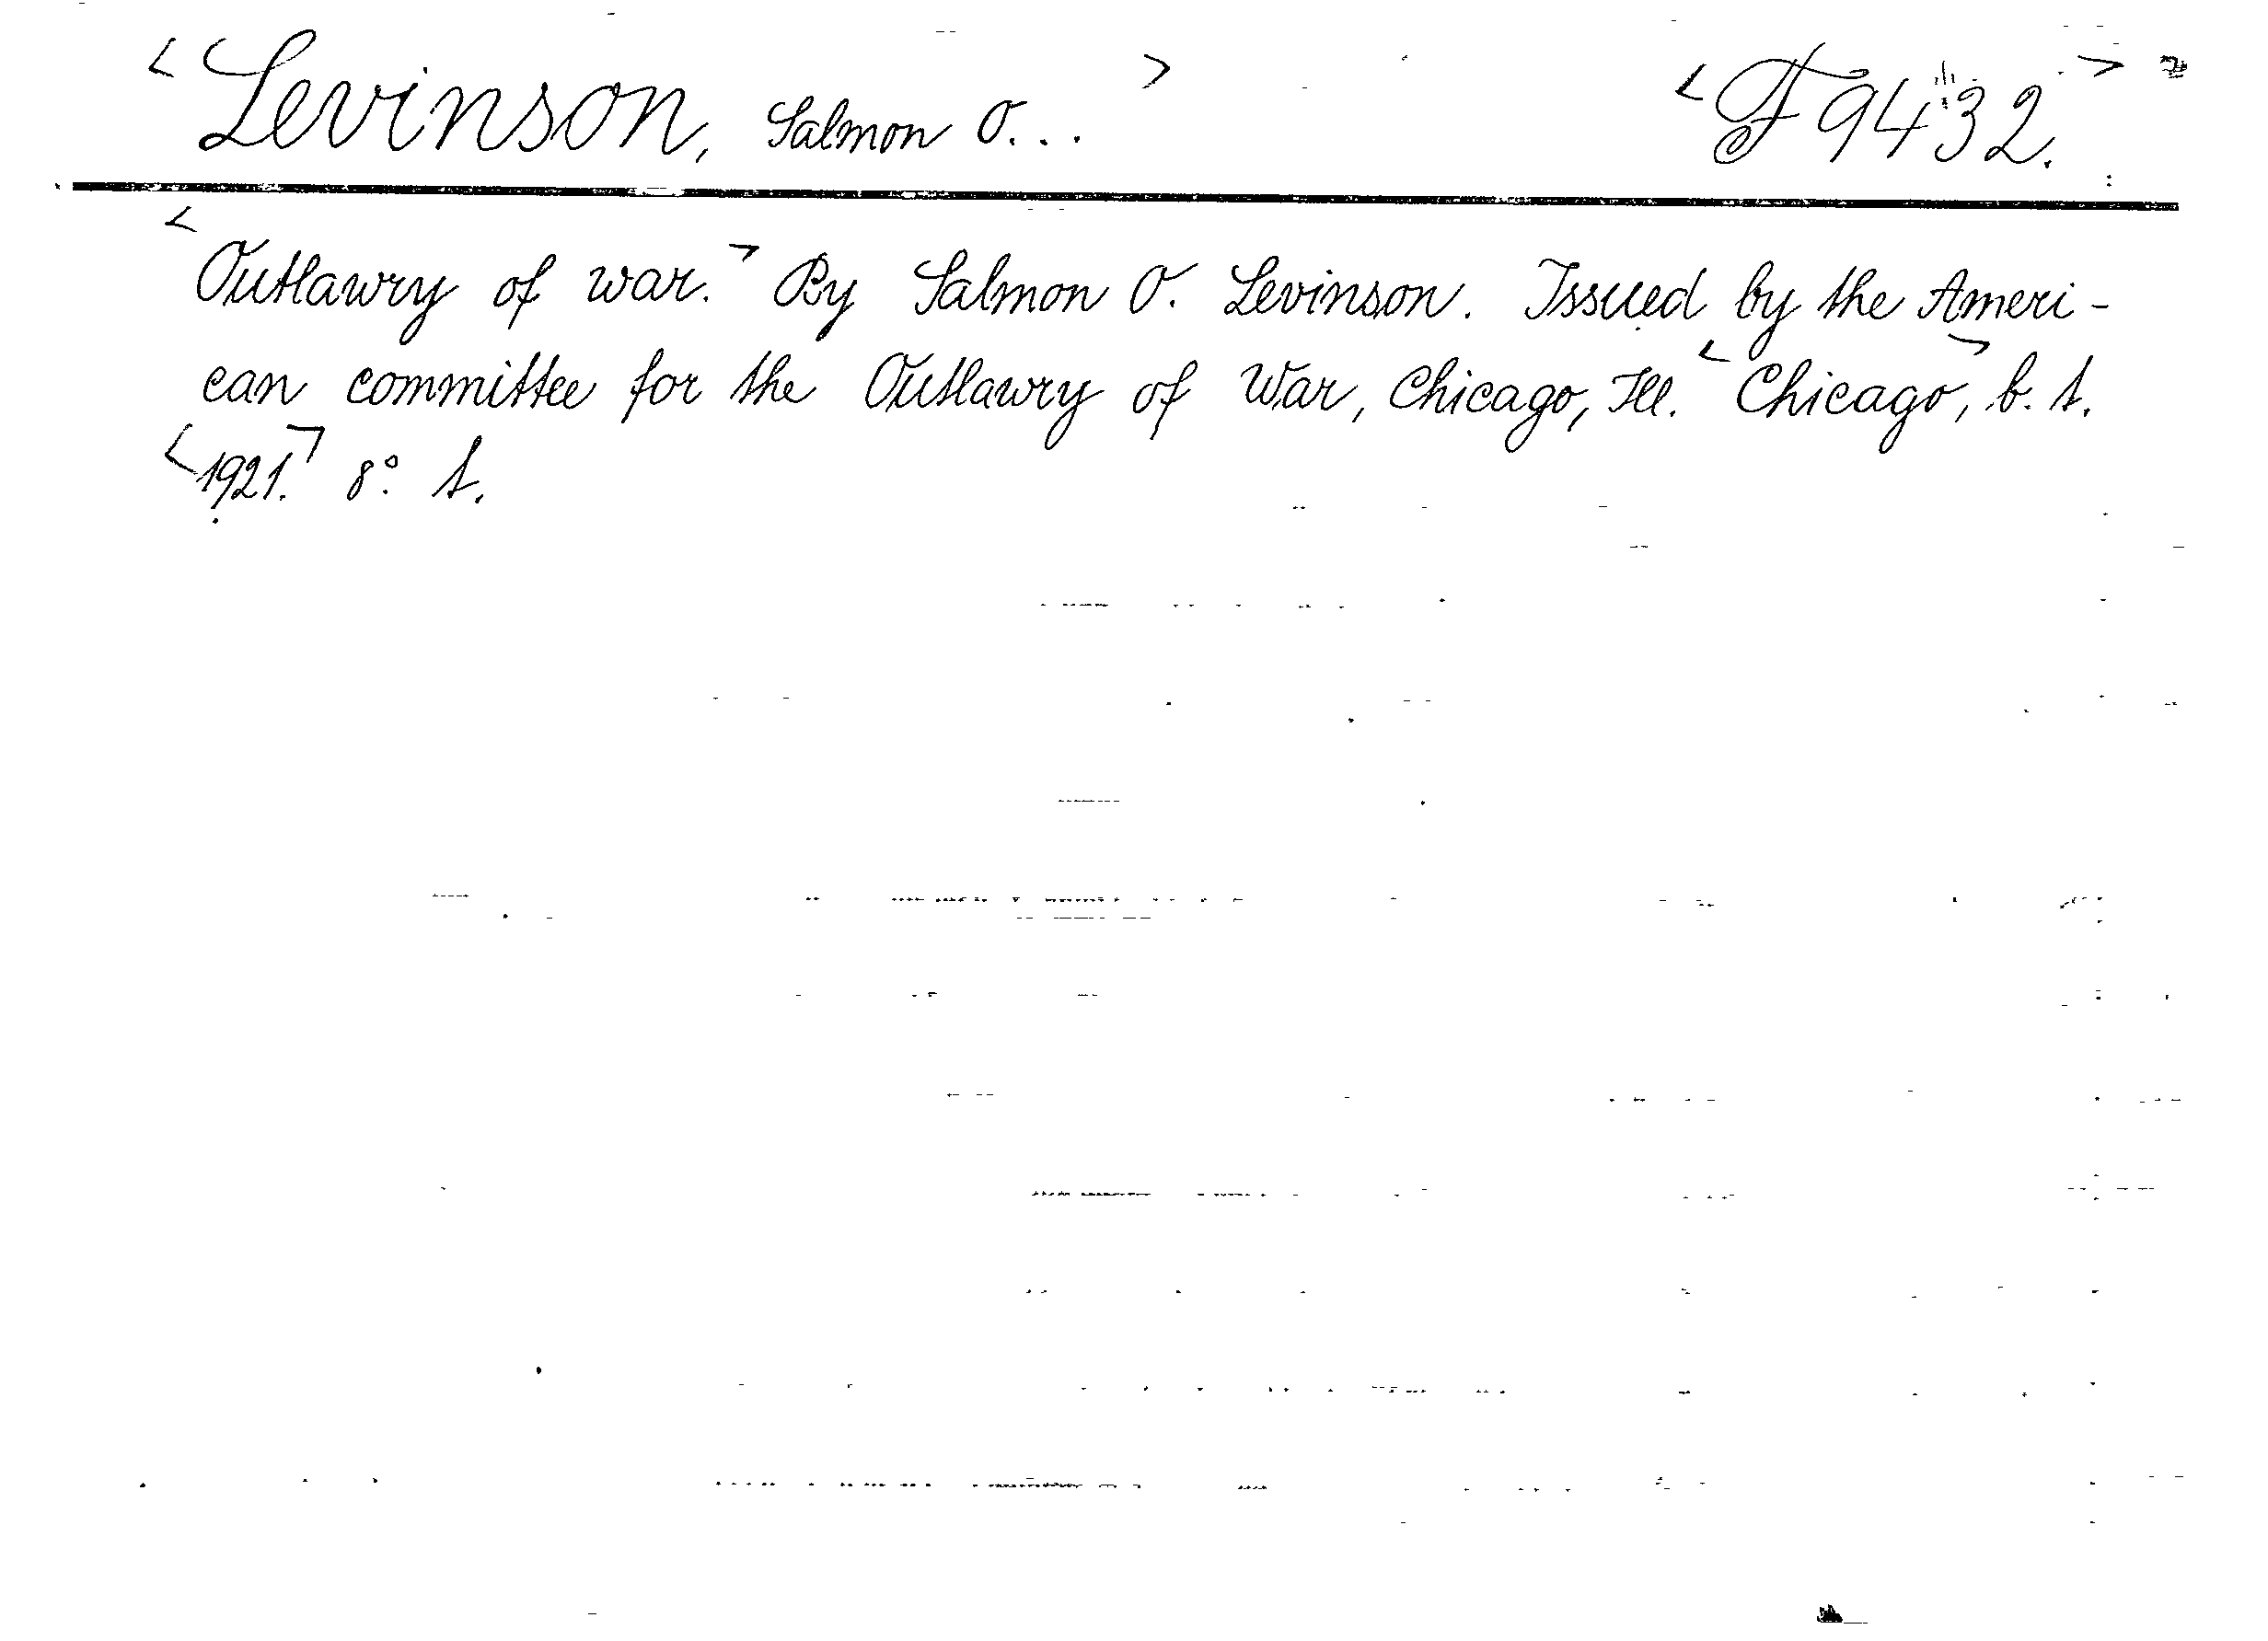 <Levinson, Salmon O...> <F 9432.>
<Outlawry of war.> By Salmon O. Levinson. Issued by the Ameri-
can committee for the Outlawry of War, Chicago, Ill. <Chicago>, b. t.
<1921.> 8° t.